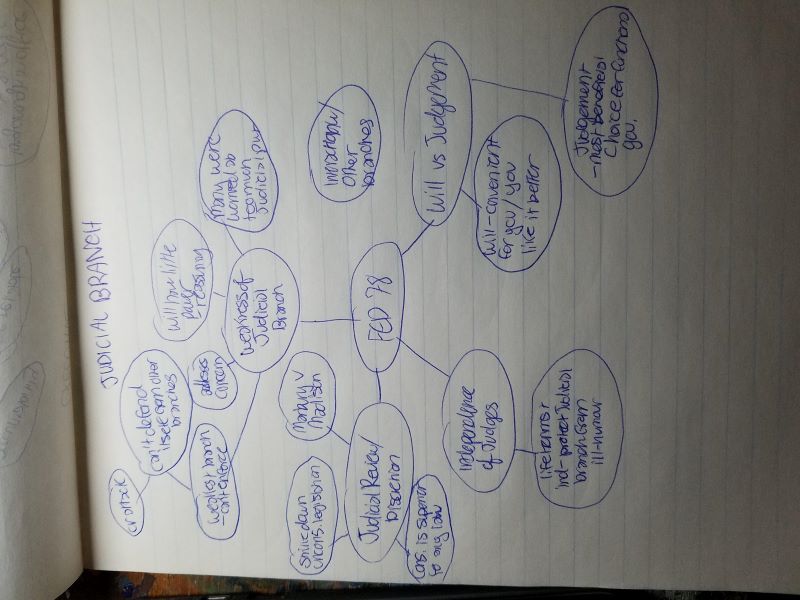 JUDICIAL BRANCH
can't defend
itself from other
branches
weakest branch
- can't enforce
address
concern
will have little
power
reasoning
many were
worried ab
too much
Judicial pwr
weakness of
Judicial
Branch
Interaction w/
Other
branches
Will vs Judgement
Judgement
- most beneficial
choice for functional
gov.
will - convenient
for you / you
like it better
FED 78
Marbury v
Madison
Judicial Review
Discretion
Strike down
uncons. legislation
Cons. is superior
to any law
independence
of Judges
life terms +
ind - protect Judicial
branch from
ill-humor